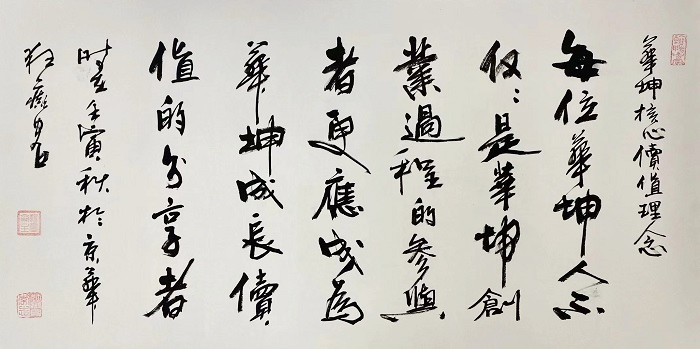 華坤核心價值理念
每位華坤人不
仅〻是華坤創
業過程的參與
者更應成為
華坤成長價
值的分享者
時在壬寅秋於京華